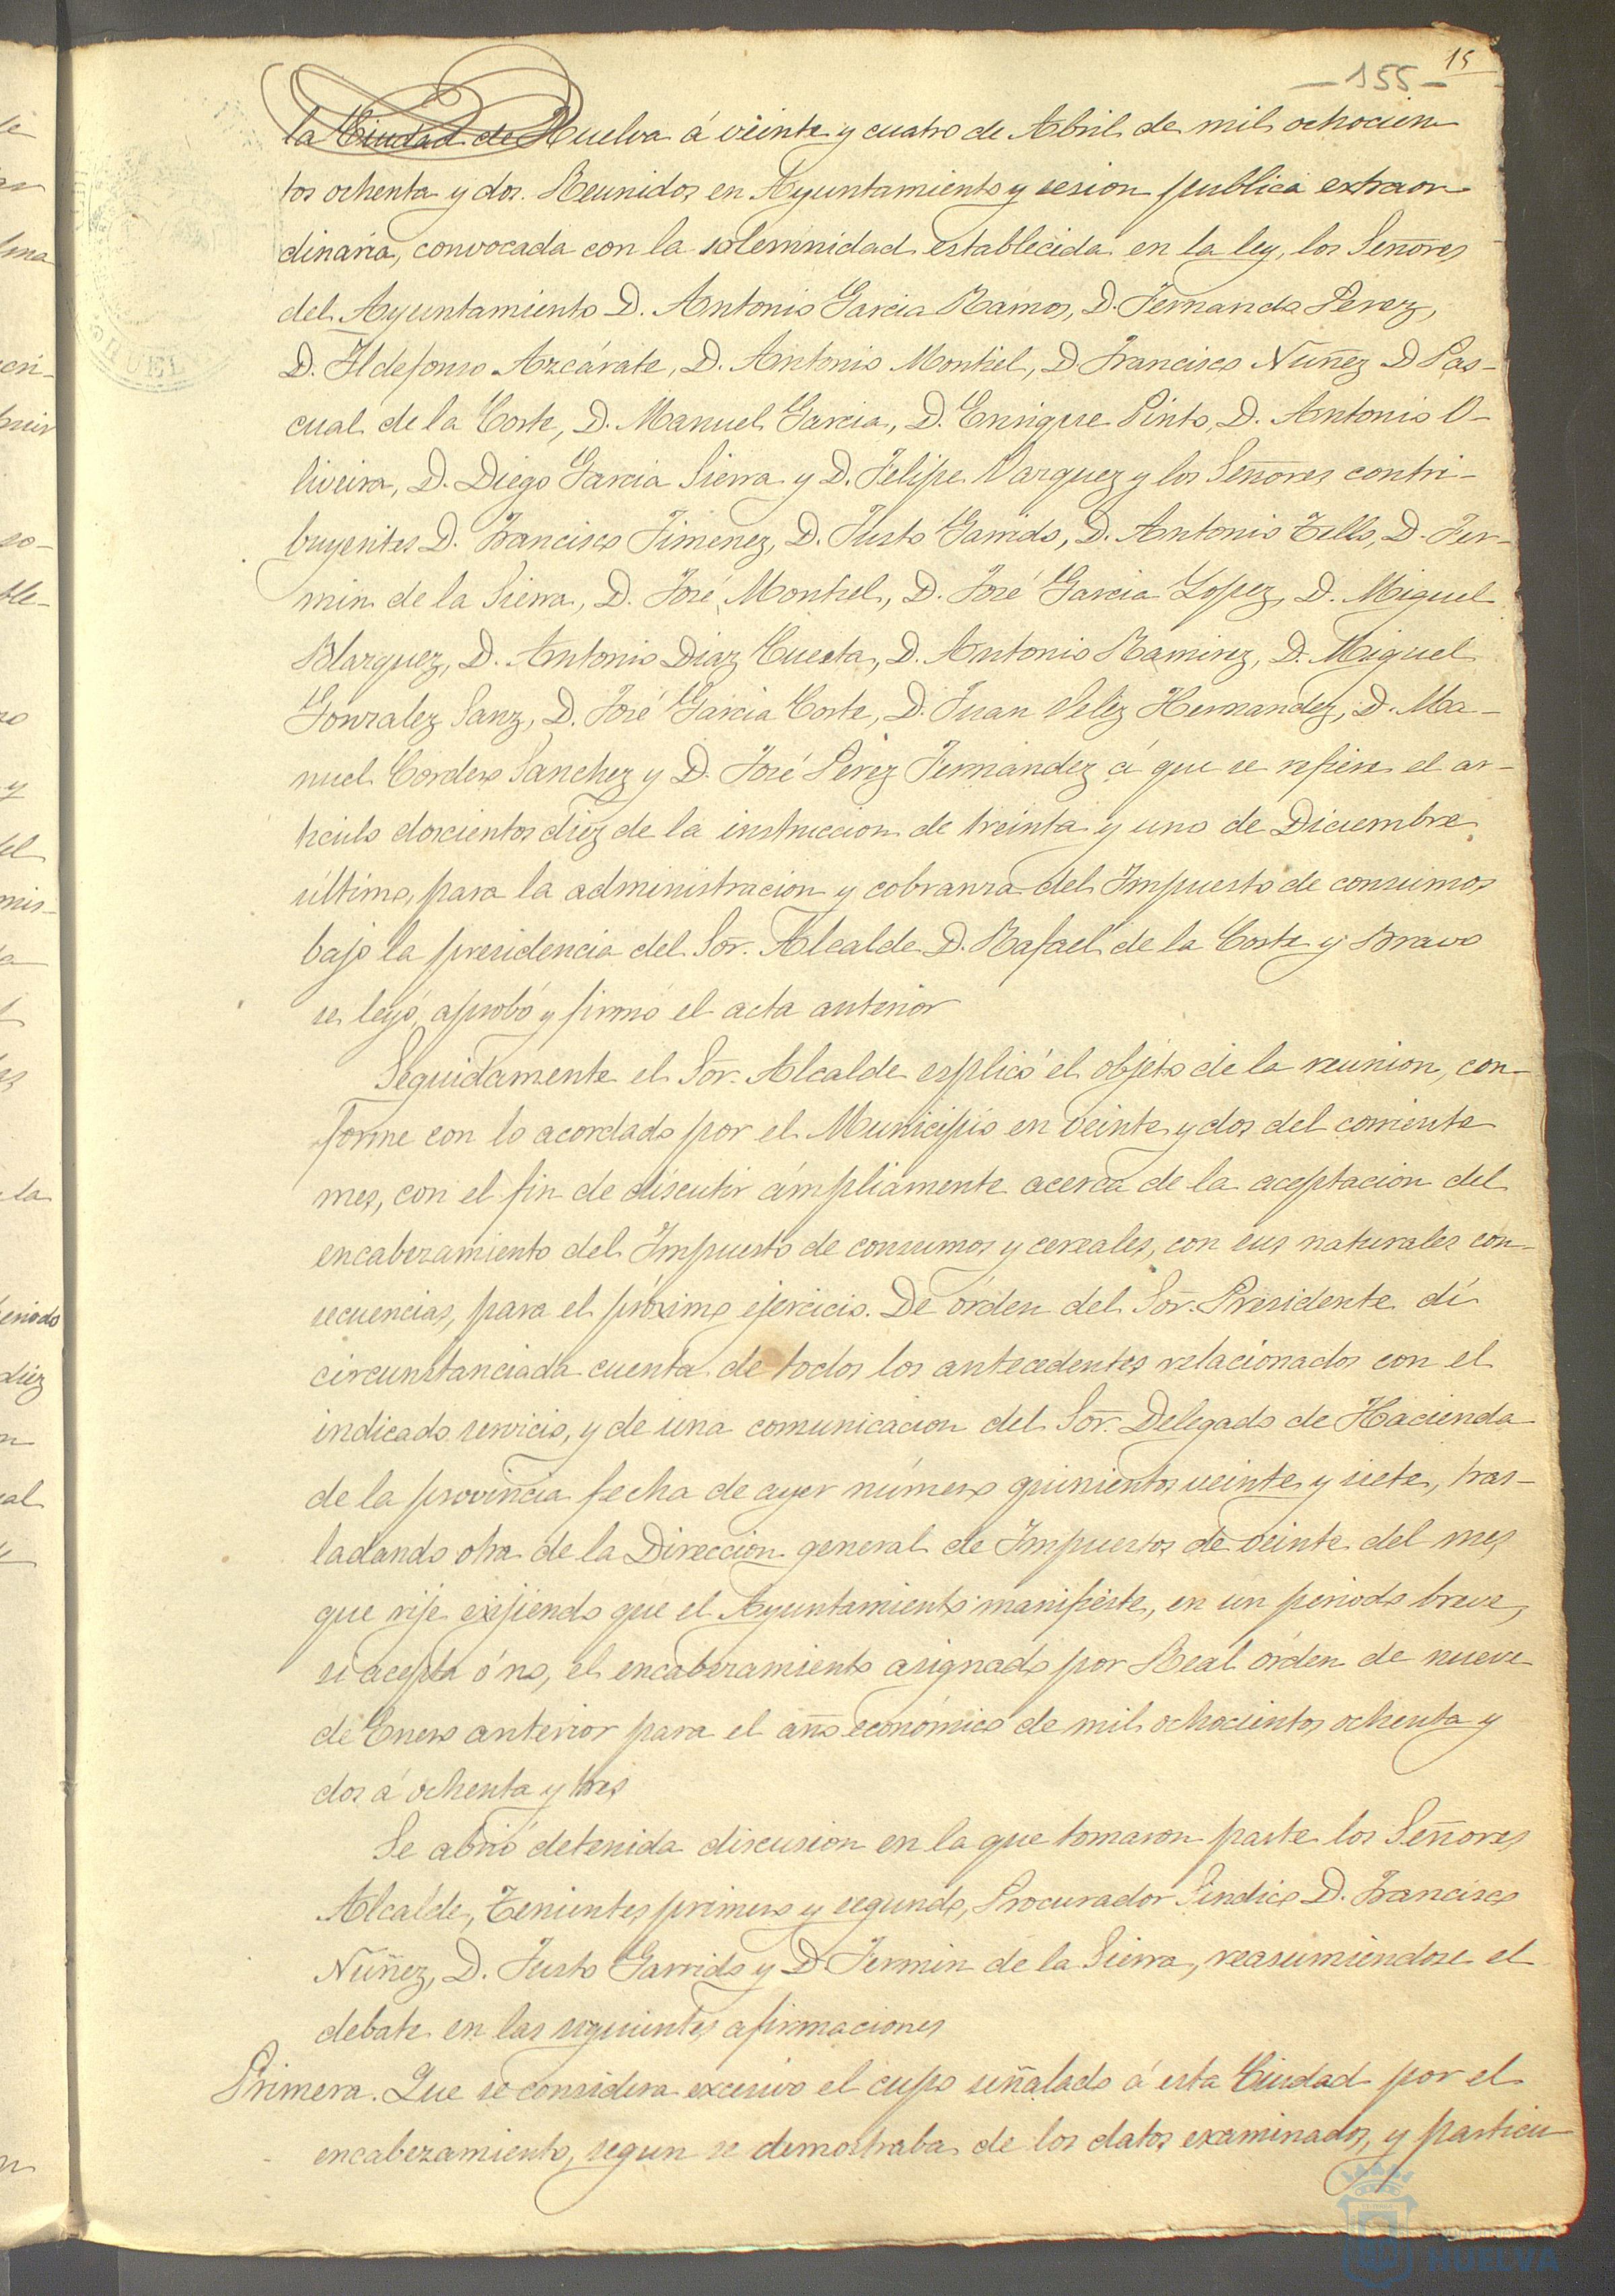 15
-155-
la Ciudad de Huelva á veinte y cuatro de Abril de mil ochocien
tos ochenta y dos. Reunidos en Ayuntamiento y sesion publica extraor
dinaria, convocada con la solemnidad establecida en la ley, los Señores
del Ayuntamiento D. Antonio Garcia Ramos, D. Fernando Perez,
D. Ildefonso Azcárate, D. Antonio Montiel, D. Francisco Nuñez D Pas-
cual de la Corte, D. Manuel Garcia, D. Enrique Pinto, D. Antonio O-
liveira, D. Diego Garcia Sierra y D. Felipe Vazquez y los Señores contri-
buyentes D. Francisco Jimenez, D. Justo Garrido, D. Antonio Tello, D. Fer-
min de la Sierra, D. José Montiel, D. José Garcia Lopez, D. Miguel
Blazquez, D. Antonio Diaz Cuesta, D. Antonio Ramirez, D. Miguel
Gonzalez Sanz, D. José Garcia Corte, D. Juan Velez Hernandez, D. Ma-
nuel Cordero Sanchez y D. José Perez Fernandez á que se refiere el ar-
ticulo doscientos diez de la instruccion de treinta y uno de Diciembre
último, para la administracion y cobranza del Impuesto de consumos
bajo la presidencia del Sor. Alcalde D. Rafael de la Corte y Bravo
se leyó, aprobó y firmó el acta anterior
Seguidamente el Sor. Alcalde esplicó el objeto de la reunion, con-
forme con lo acordado por el Municipio en veinte y dos del corriente
mes, con el fin de discutir ámpliamente acerca de la aceptacion del
encabezamiento del Impuesto de consumos y cereales, con sus naturales con-
secuencias, para el próximo ejercicio. De órden del Sor. Presidente dí
circunstanciada cuenta de todos los antecedentes relacionados con el
indicado servicio, y de una comunicacion del Sor. Delegado de Hacienda
de la provincia fecha de ayer número quinientos veinte y siete, tras-
ladando otra de la Direccion general de Impuestos de veinte del mes
que rije exijiendo que el Ayuntamiento manifieste, en un periodo breve,
si acepta ó no, el encabezamiento asignado por Real órden de nueve
de Enero anterior para el año económico de mil ochocientos ochenta y
dos á ochenta y tres
Se abrió detenida discusion en la que tomaron parte los Señores
Alcalde, Tenientes primero y segundo, Procurador Sindico D. Francisco
Nuñez, D. Justo Garrido y D Fermin de la Sierra, reasumiendose el
debate en las siguientes afirmaciones
Primera. Que se considera excesivo el cupo señalado á esta Ciudad por el
encabezamiento, segun se demostraba de los datos examinados, y particu
HUELVA